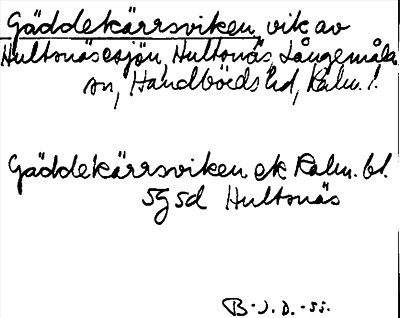 Gäddekärrsviken, vik av
Hultsnäsesjön, Hultsnäs, Långemåla
sn, Handbörds hd, Kalm. l.
Gäddekärrsviken ek Kalm. bl.
5g5d Hultsnäs
B-J.D.-55.